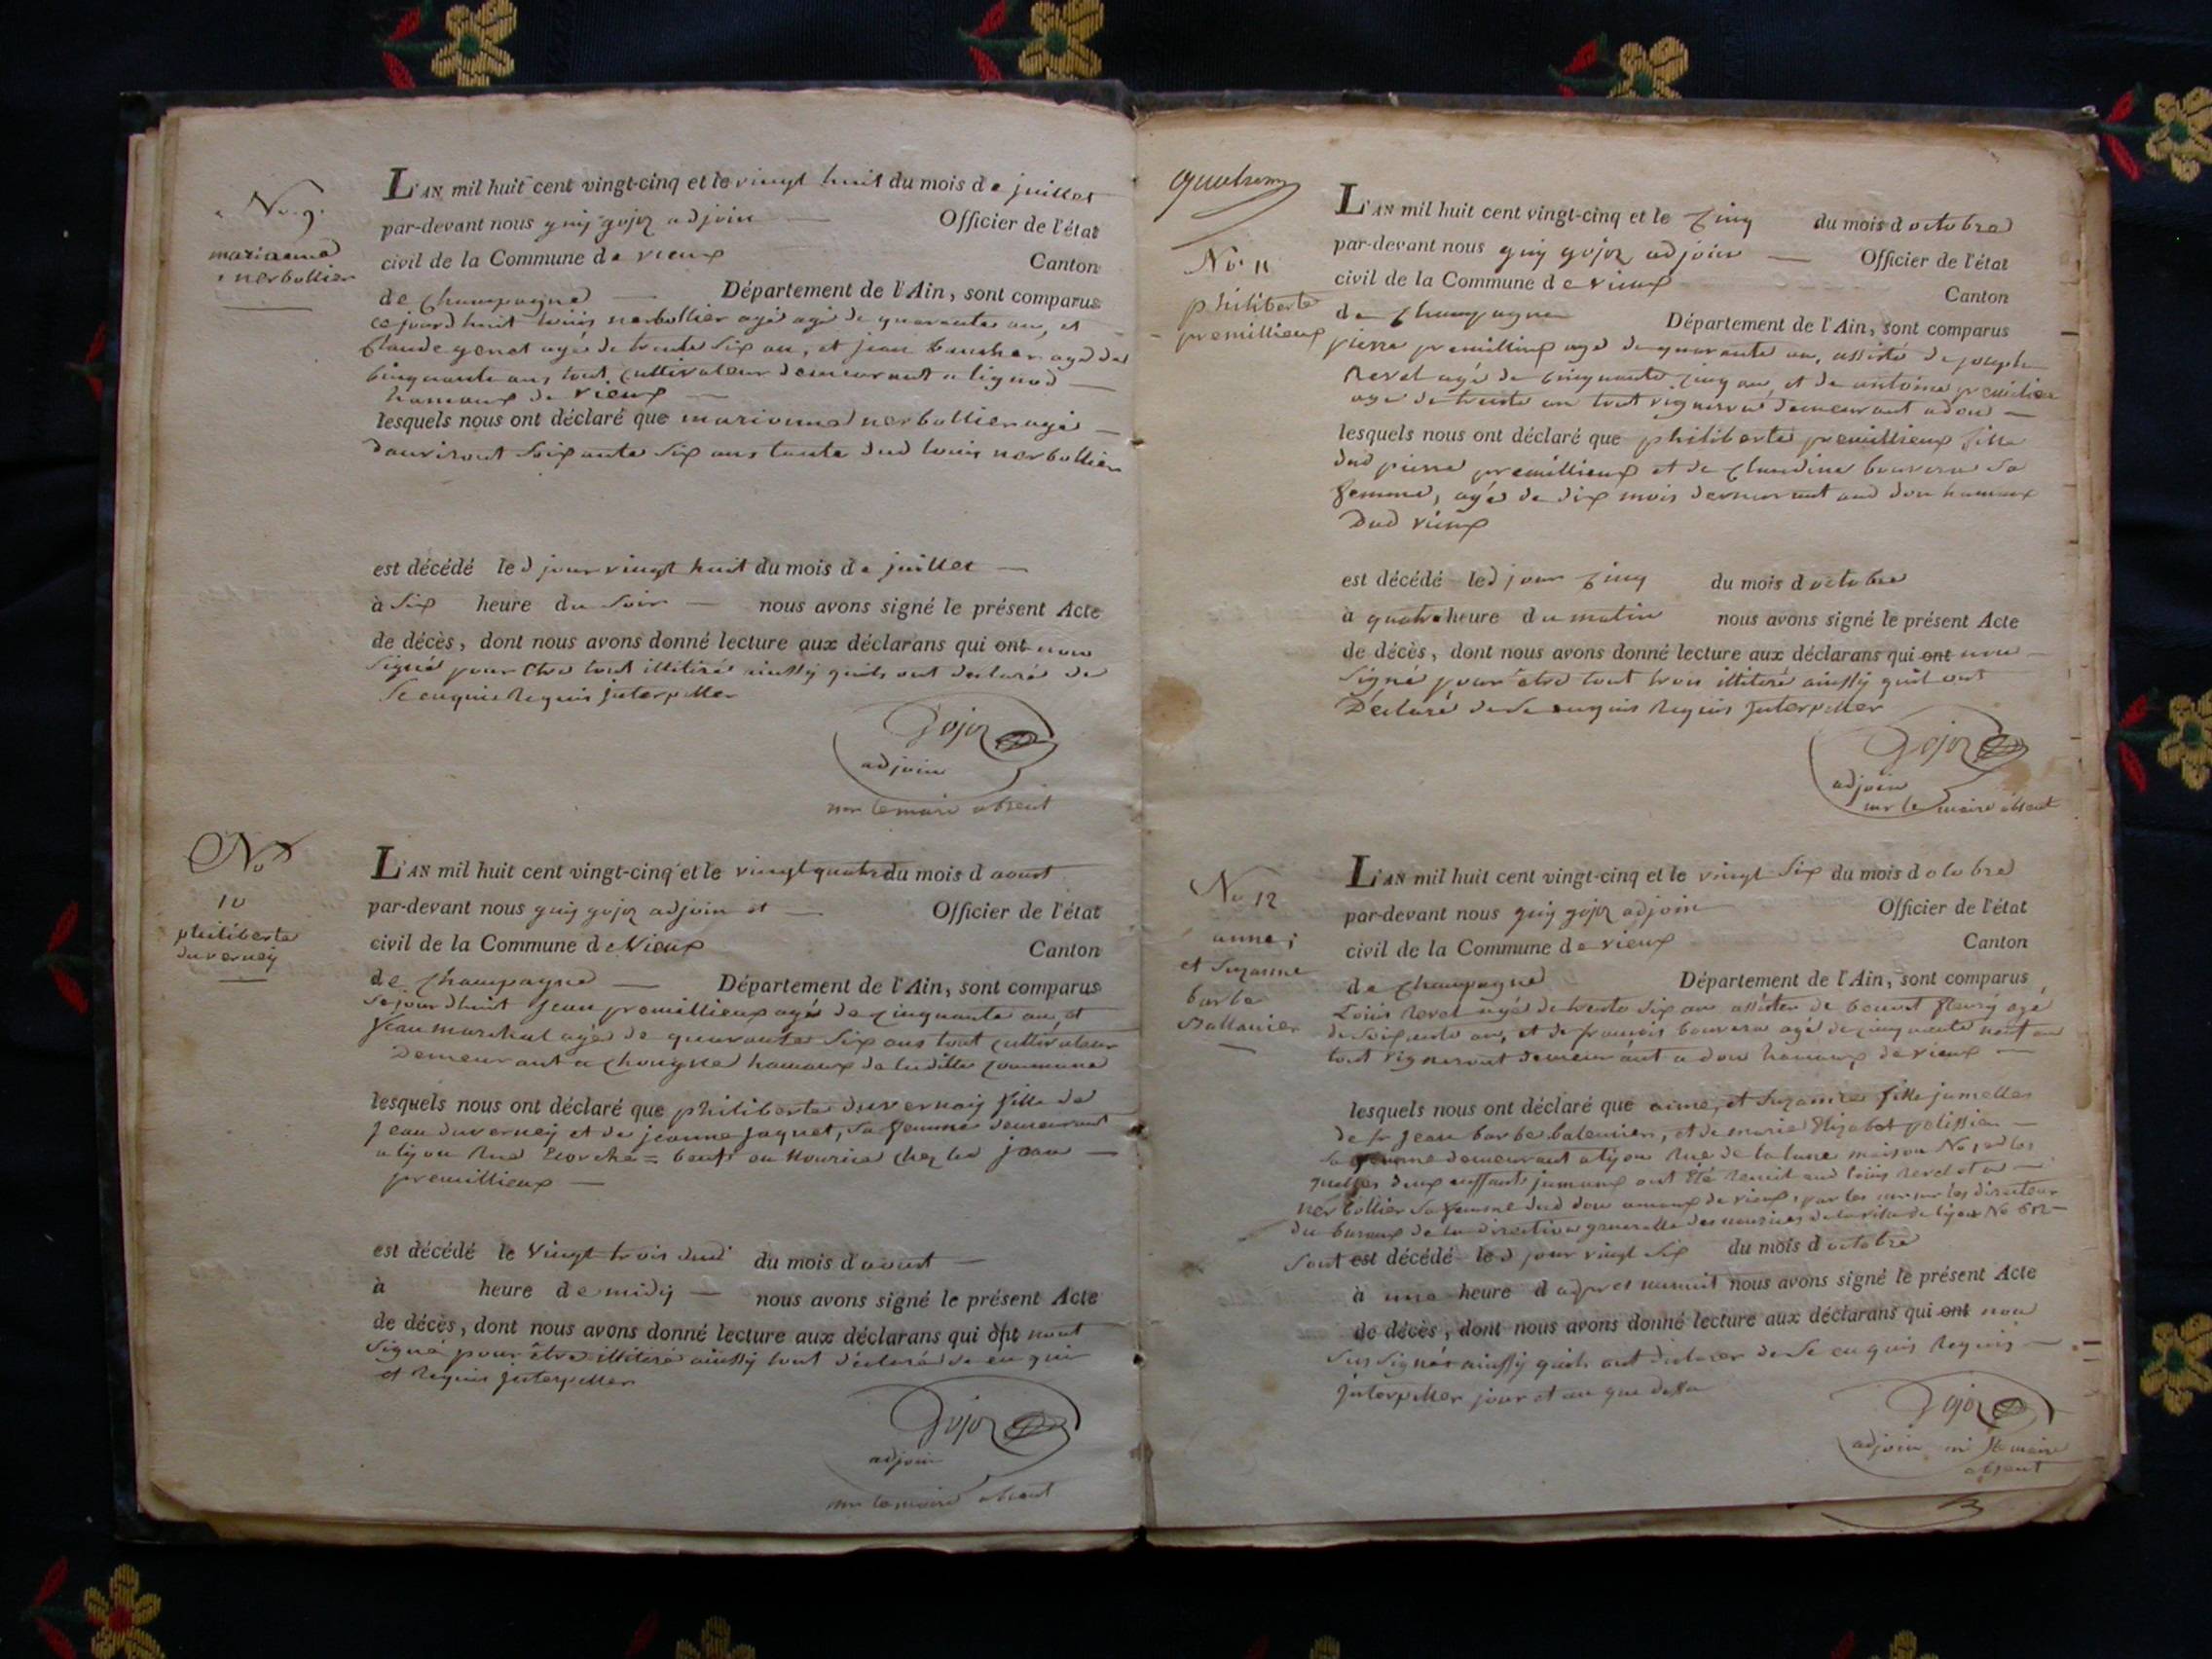 No. 9.
marianne
nerbollier
L'AN mil huit cent vingt-cinq et le vingt huit du mois de juillet
par-devant nous guy gojoz adjoin Officier de l'état
civil de la Commune de vieux Canton
de Champagne Département de l'Ain, sont comparus
cejourdhuit louis nerbollier agé agé de quarante an, et
Claude genet agé de trente six an, et jean agé de
cinquante ans tout cultivateur demeurant a lignod
hamaux de vieux
lesquels nous ont déclaré que marianne nerbollier agé
danviront soixante six ans tante dud louis nerbollier
est décédé led jour vingt huit du mois de juillet
à six heure du soir nous avons signé le présent Acte
de décès, dont nous avons donné lecture aux déclarans qui ont non
signé pour être tout illitiré ainssy quils ont declaré de
se enquis requis interpeller
Gojoz
adjoin
mr lemaire absent
No
10
philiberte
duverney
L'AN mil huit cent vingt-cinq et le vingt quatre du mois d aoust
par-devant nous guy gojoz adjoin et Officier de l'état
civil de la Commune de Vieux Canton
de Champagne Département de l'Ain, sont comparus
sejourdhuit jean premillieux agé de cinquante an, et
jean marchal agé de quarante six ans tout cultivateur
demeurant a chongne hamaux de laditte commune
lesquels nous ont déclaré que philiberte duverney fille de
jean duverney et de jeanne jaquet, sa femme demeurant
a lyon rue Ecorche = beuf en nourice chez led jean
premillieux
est décédé le vingt trois dud du mois d'aoust
à heure de midy nous avons signé le présent Acte
de décès, dont nous avons donné lecture aux déclarans qui ont nont
signé pour être illitiré ainssy tout déclaré de enquis
et requis interpeller
Gojoz
adjoin
mr lemaire absent
No 11
philiberte
premillieux
L'AN mil huit cent vingt-cinq et le cinq du mois d octobre
par-devant nous guy gojoz adjoin Officier de l'état
civil de la Commune de vieux Canton
de Champagne Département de l'Ain, sont comparus
pierre premillieux agé de quarante an, assisté de joseph
Revel agé de cinquante cinq an, et de antoine premilieu
agé de trente an tout vigneron demeurant a don
lesquels nous ont déclaré que philiberte premillieux fille
dud pierre premillieux et de claudine bouvera sa
femme, agé de dix mois demeurant aud don hamaux
dud vieux
est décédé led jour cinq du mois d octobre
à quatre heure du matin nous avons signé le présent Acte
de décès, dont nous avons donné lecture aux déclarans qui ont non
signé pour être tout trois illitiré ainssy quil ont
Déclaré de se enquis requis interpeller
Gojoz
adjoin
mr le maire absent
No 12
anne;
et suzanne
barbe
Ballanier
L'AN mil huit cent vingt-cinq et le vingt six du mois d otobre
par-devant nous guy gojoz adjoin Officier de l'état
civil de la Commune de vieux Canton
de Champagne Département de l'Ain, sont comparus
Louis revel agé de trente six an assister de benoit fleury agé
de soixante an, et de françois bouvera agé de cinquante neuf an
tout vigneront demeurant a don hamaux de vieux
lesquels nous ont déclaré que anne, et suzanne fille jumelles
de sr jean barbe balenier, et de marie Elizabet pelissier
sa femme demeurant a lyon rue de la lune maison No les
quelles deux enffants jumaux ont été remit aud louis revel et a
nerbollier sa femme dud don amaux de vieux, par les directeur
du buraux de la direction generalle des nourices de la ville de lyon No 612
sont est décédé led jour vingt six du mois d octobre
à une heure d apres nous avons signé le présent Acte
de décès, dont nous avons donné lecture aux déclarans qui ont non
signér ainssy quils ont declarer de se enquis requis
interpeller jour et an que dessu
Gojoz
adjoin mr le maire
absent